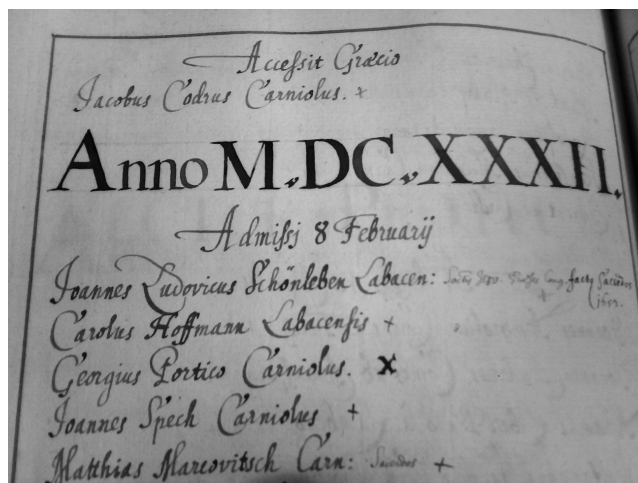 Accessit Græcio
Jacobus Codrus Carniolus. +
Anno M.DC.XXXII.
Admissj 8 Februarÿ
Joannes Ludovicus Schönleben Labacen:
Carolus Hoffmann Labacensis +
Georgius Portico Carniolus. x
Joannes Spech Carniolus +
Matthias Marcovitsch Carn: Sacerdos +